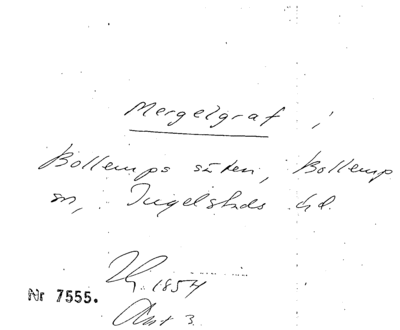 Mergelgraf i
Bollerups säteri, Bollerup
sn, Ingelstads hd.
1854
Nr 7555.
3